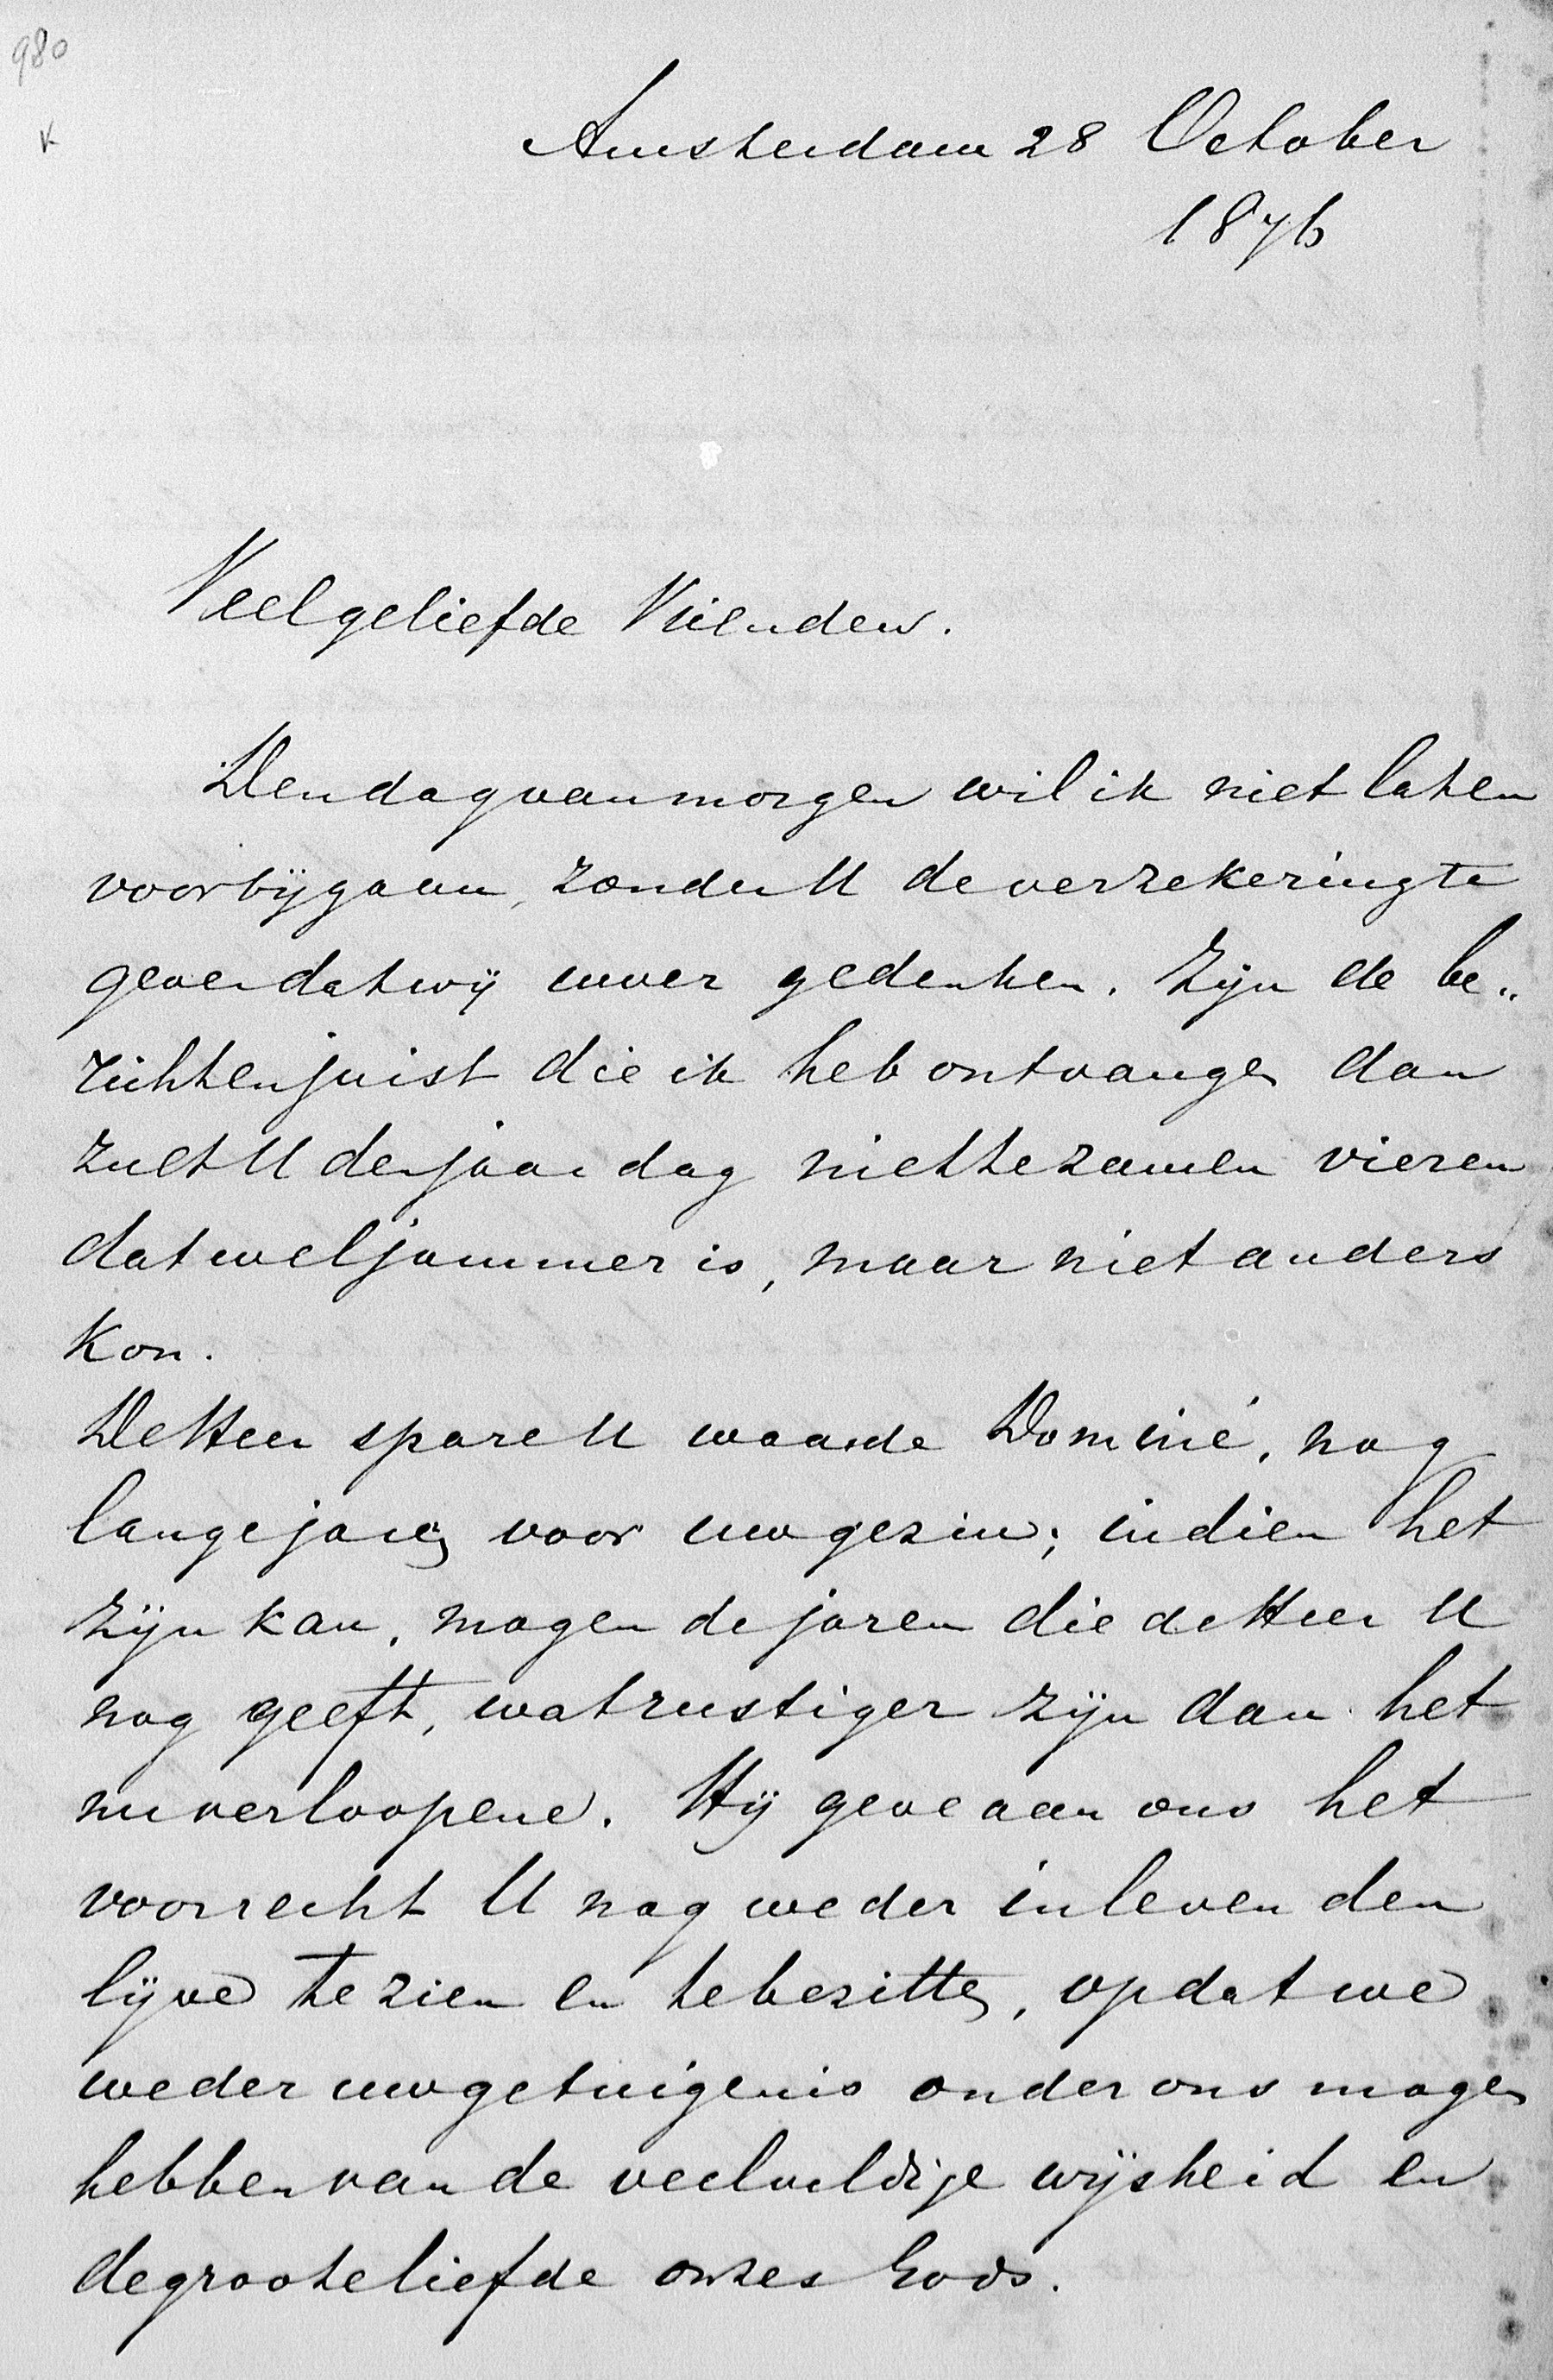 980
K
Amsterdam 28 October
1876
Veelgeliefde Vrienden.
Den dag van morgen wil ik niet laten
voorbijgaan, zonder U de verzekering te
geven dat wij uwer gedenken. Zijn de be„
richten juist die ik heb ontvangen dan
zult U den jaardag niet te zamen vieren
dat wel jammer is, maar niet anders
kon.
De Heer spare U waarde Dominé, nog
lange jaren voor uw gezin; indien het
zijn kan, mogen de jaren die de Heer U
nog geeft, wat rustiger zijn dan het
nu verloopene. Hij geve aan ons het
voorrecht U nog weder in levenden
lijve te zien en te bezitten, opdat we
weder uw getuigenis onder ons mogen
hebben van de veelvuldige wijsheid en
de groote liefde onzes Gods.